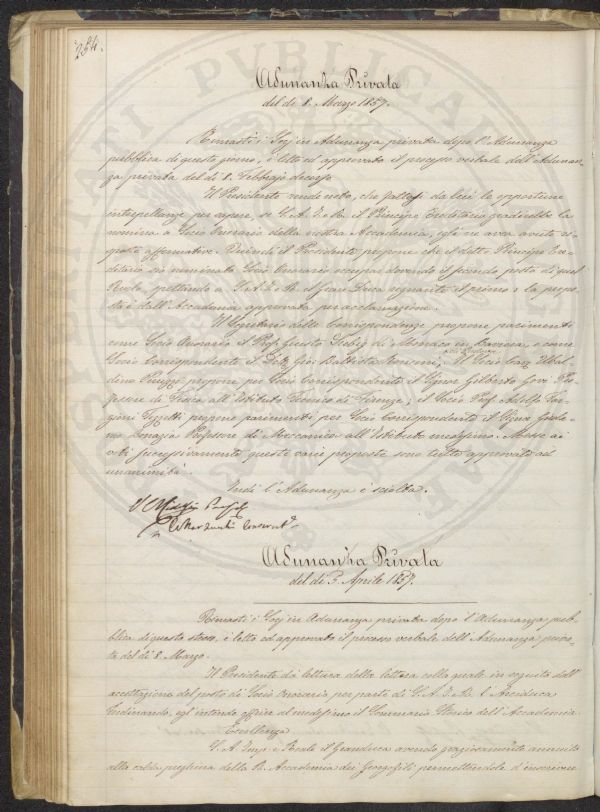 254.
Adunanza Privata
del dì 8. Marzo 1857.
Rimasti i Socj in Adunanza privata dopo l'Adunanza
pubblica di questo giorno, è letto ed approvato il processo verbale dell'Adunan-
za privata del dì 8. Febbrajo decorso.
Il Presidente rende noto, che fattesi da lui le opportune
interpellanze per sapere, se S. A. I. e R. il Principe Ereditario gradirebbe la
nomina a Socio Onorario della nostra Accademia, egli ne aveva avuta ri-
sposta affermativa. Quindi il Presidente propone che il detto Principe Ere-
ditario sia nominato Socio Onorario occupar dovendo il secondo posto di quel
Ruolo, spettando a S. A. I. e R. il Gran Duca regnante il primo: e la propo-
sta è dall'Accademia approvata per acclamazione.
Il Segretario delle Corrispondenze propone parimente
come Socio Onorario il Prof. Giusto Liebig di Monaco in Baviera, e come
Socio Corrispondente il Dott. Gio: Battista
di Padova
Il Socio Cav. Ubal-
dino Peruzzi propone per Socio Corrispondente il Signor Gilberto Govi Pro-
fessore di Fisica all'Istituto Tecnico di Firenze; il Socio Prof. Adolfo Tar-
gioni Tozzetti propone parimente per Socio Corrispondente il Signor Giro-
mo Professore di Meccanica all'Istituto medesimo. Messe ai
voti successivamente queste varie proposte sono tutte approvate ad
unanimità.
Quindi l'Adunanza è sciolta.
Adunanza Privata
del dì 5. Aprile 1857.
Rimasti i Socj in Adunanza privata dopo l'Adunanza pub-
blica di questo stesso, è letto ed approvato il processo verbale dell'Adunanza priva-
ta del dì 8. Marzo.
Il Presidente dà lettura della lettera colla quale in seguito dell'
accettazione del posto di Socio Onorario per parte di S. A. I. e R. l'Arciduca
Ferdinando, egli intende offrire al medesimo il Sommario Storico dell'Accademia.
Eccellenza
S. A. Imp. e Reale il Granduca avendo graziosamente annuito
alla calda preghiera della R. Accademia dei Georgofili permettendole d'inscrivere